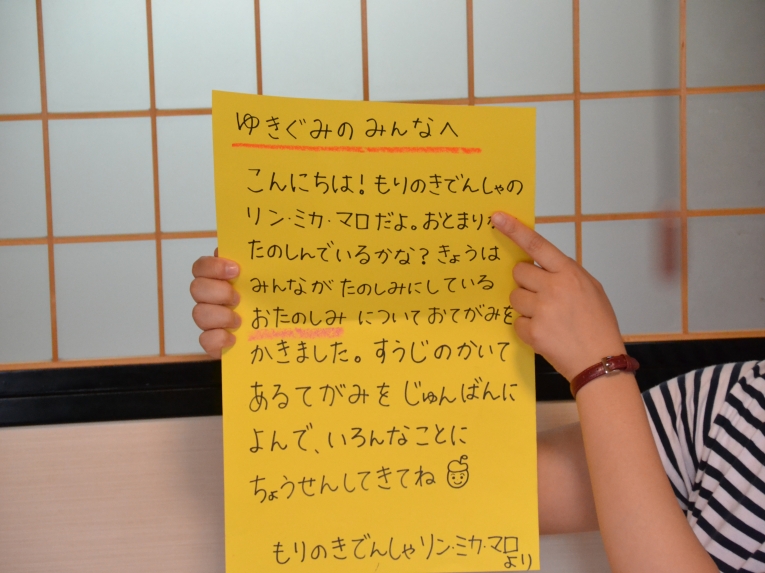 ゆきぐみの みんなへ
こんにちは！もりのきでんしゃの
リン・ミカ・マロだよ。おとまり
たのしんでいるかな？きょうは
みんなが たのしみにしている
おたのしみ について おてがみを
かきました。すうじのかいて
あるてがみを じゅんばんに
よんで、いろんなことに
ちょうせんしてきてね
もりのきでんしゃ リン・ミカ・マロ
より